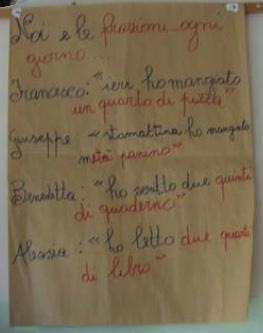 Noi e le frazioni ogni
giorno....
Francesco: "ieri ho mangiato
un quarto di pizza"
Giuseppe: "stamattina ho mangiato
metà panino"
Benedetta: "ho scritto due quinti
di quaderno"
Alessia: "ho letto due quarti
di libro"